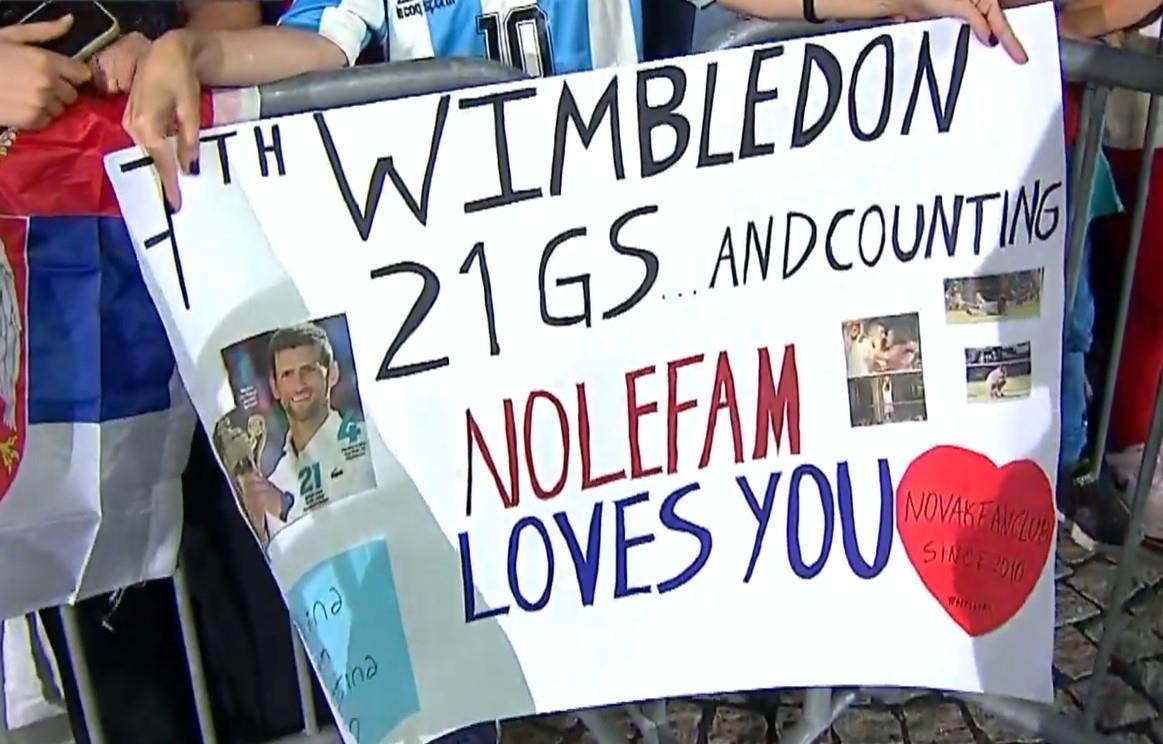 10
7TH WIMBLEDON
21 GS...AND COUNTING
NOLEFAM
LOVES YOU
4
21
NOVAKFANCLUB
SINCE 2010